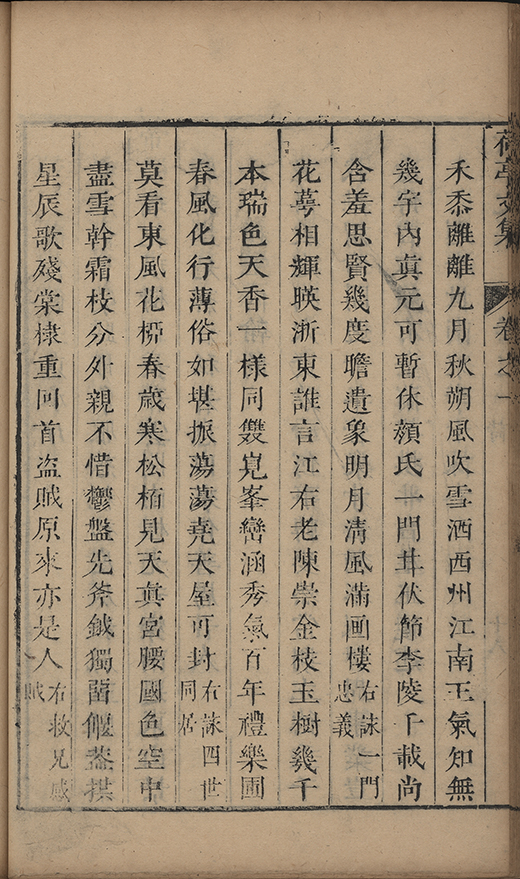 荷亭文集 卷之一
禾黍離離九月秋朔風吹雪洒西州江南王氣知無
幾宇內眞元可暫休顏氏一門幷伏節李陵千載尚
含羞思賢幾度瞻遺象明月清風滿畫樓右詠一門忠義
花萼相輝暎浙東誰言江右老陳崇金枝玉樹幾千
本瑞色天香一樣同雙嵬峯巒涵秀氣百年禮樂團
春風化行薄俗如堪振蕩蕩堯天屋可封右詠四世同居
莫看東風花桺春歲寒松栢見天眞宮腰國色空中
盡雪幹霜枝分外親不惜鬱盤先斧鉞獨留偃蓋拱
星辰歌殘棠棣重回首盜賊原來亦是人右救兄感賊